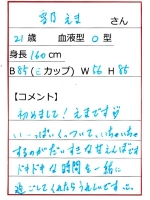 雪乃 えま さん
21歳 血液型 O型
身長 160 cm
B 85 (Eカップ) W 56 H 85
【コメント】
初めまして！えまです♡
い〜っぱいくっついて、いちゃいちゃ
するのがだいすきな甘えんぼです
ドキドキな時間を一緒に
過ごしてくれたらうれしいです。